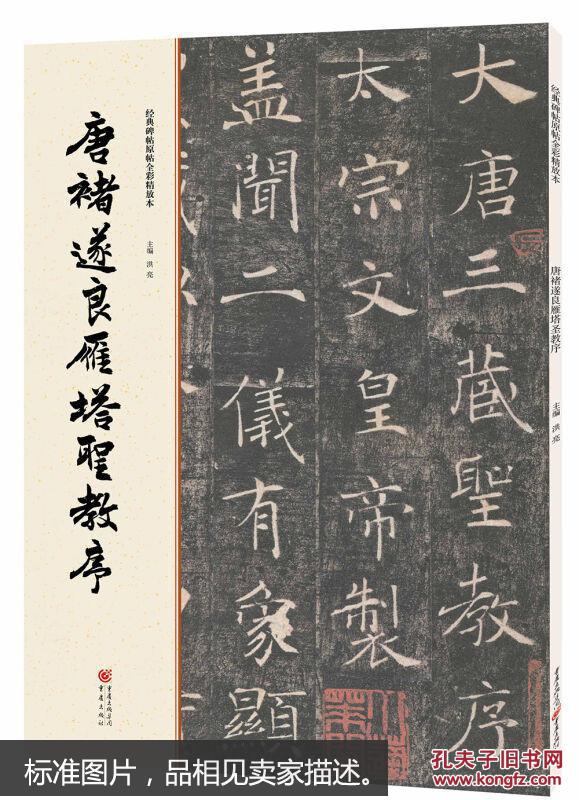 经典碑帖原帖全彩精放本
主编 洪亮
唐褚遂良雁塔聖教序
重庆出版集团
重庆出版社
大唐三藏聖教序
太宗文皇帝製
盖聞二儀有象顯
经典碑帖原帖全彩精放本
唐褚遂良雁塔圣教序
主编 洪亮
标准图片，品相见卖家描述。
孔夫子旧书网
www.kongfz.com